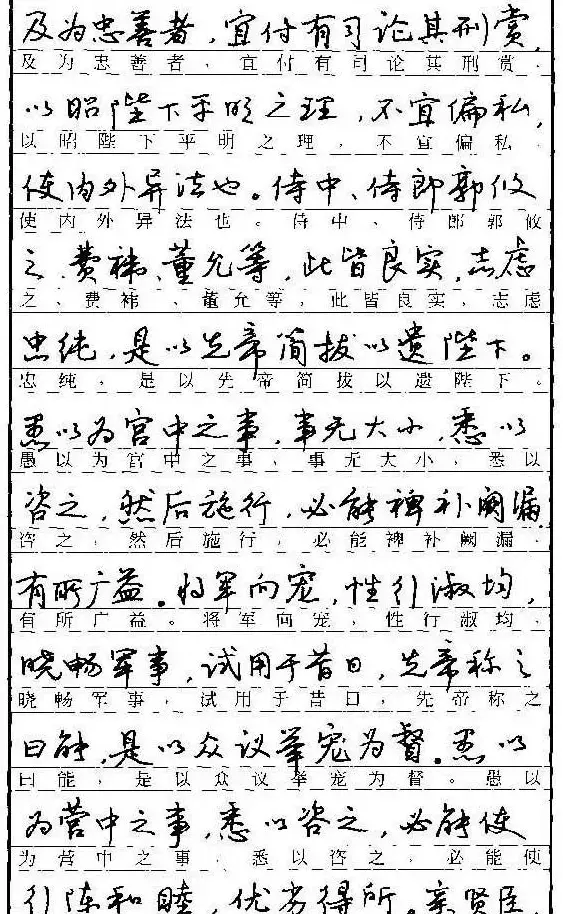 及为忠善者，宜付有司论其刑赏，
及为忠善者，宜付有司论其刑赏，
以昭陛下平明之理，不宜偏私，
以昭陛下平明之理，不宜偏私，
使内外异法也。侍中、侍郎郭攸
使内外异法也。侍中、侍郎郭攸
之、费祎、董允等，此皆良实，志虑
之、费祎、董允等，此皆良实，志虑
忠纯，是以先帝简拔以遗陛下。
忠纯，是以先帝简拔以遗陛下。
愚以为宫中之事，事无大小，悉以
愚以为宫中之事，事无大小，悉以
咨之，然后施行，必能裨补阙漏，
咨之，然后施行，必能裨补阙漏，
有所广益。将军向宠，性行淑均，
有所广益。将军向宠，性行淑均，
晓畅军事，试用于昔日，先帝称之
晓畅军事，试用于昔日，先帝称之
曰能，是以众议举宠为督。愚以
曰能，是以众议举宠为督。愚以
为营中之事，悉以咨之，必能使
为营中之事，悉以咨之，必能使
行阵和睦，优劣得所。亲贤臣，